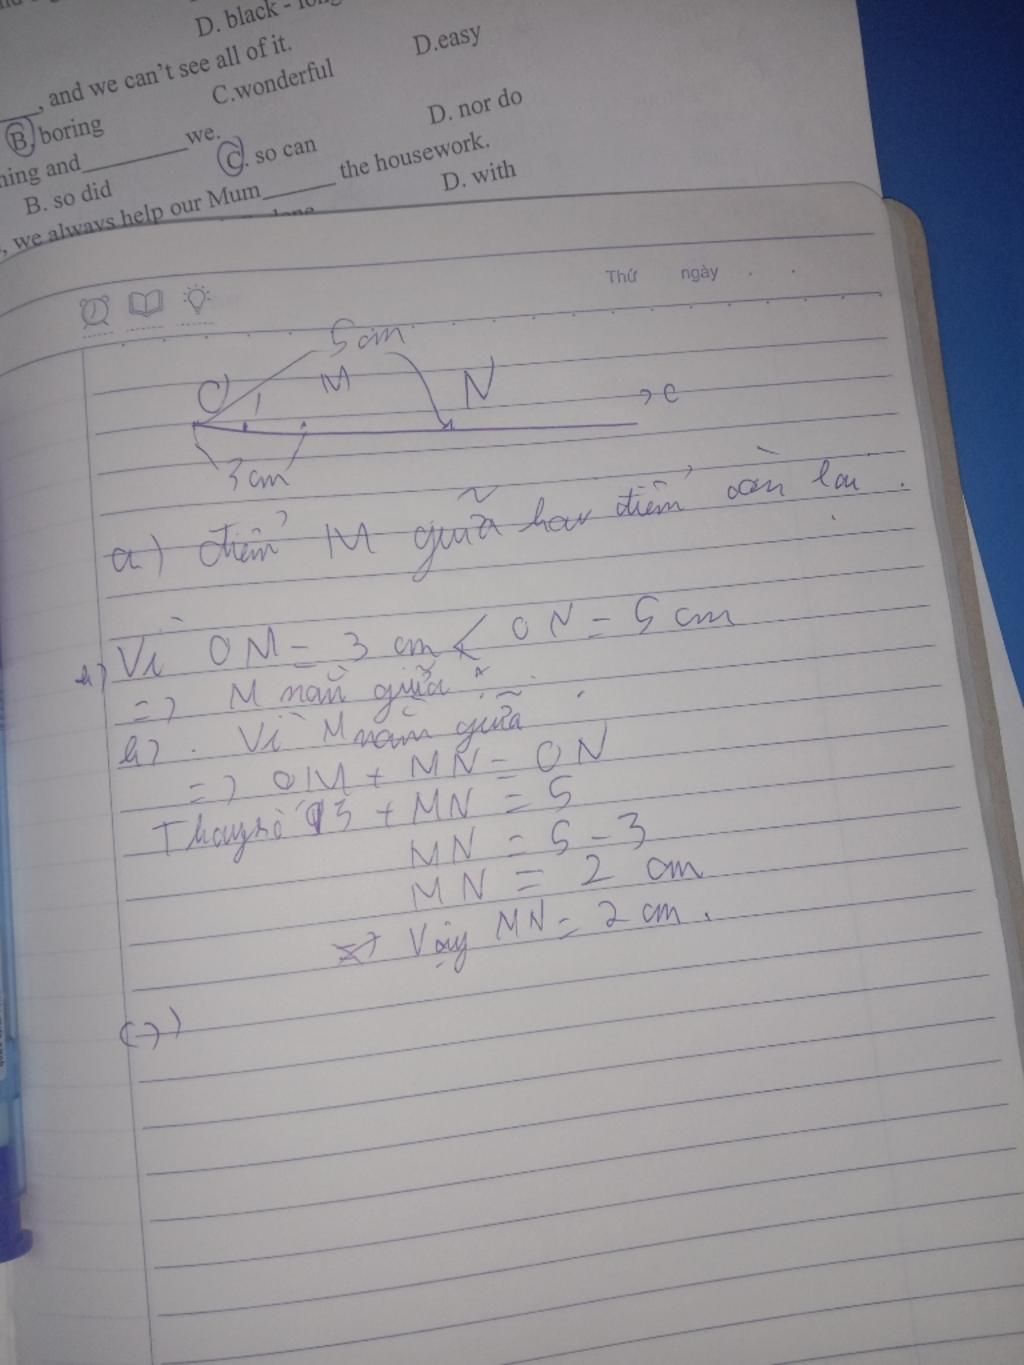 D. black - 
, and we can't see all of it.
B. boring C.wonderful D.easy
ning and we.
B. so did C. so can D. nor do
, we always help our Mum the housework.
D. with
Thứ ngày
5cm
O M N
3 cm
a) điểm M giữa hai điểm còn lại.
Vì OM = 3 cm < ON = 5 cm
=> M nằm giữa
b) Vì M nằm giữa
=> OM + MN = ON
Thay số 3 + MN = 5
MN = 5 - 3
MN = 2 cm
=> Vậy MN = 2 cm.